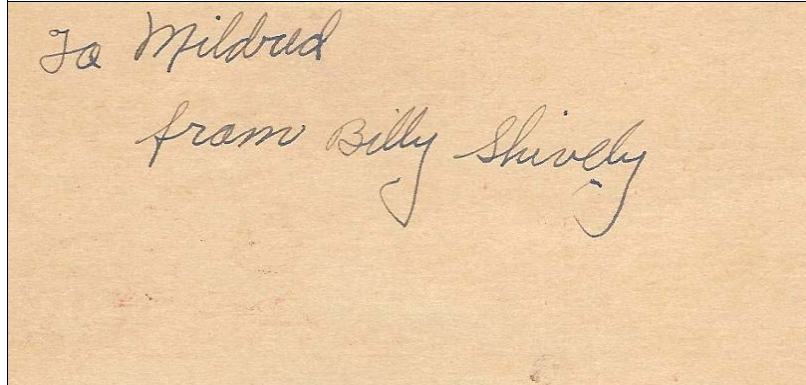 To Mildred
from Billy Shively